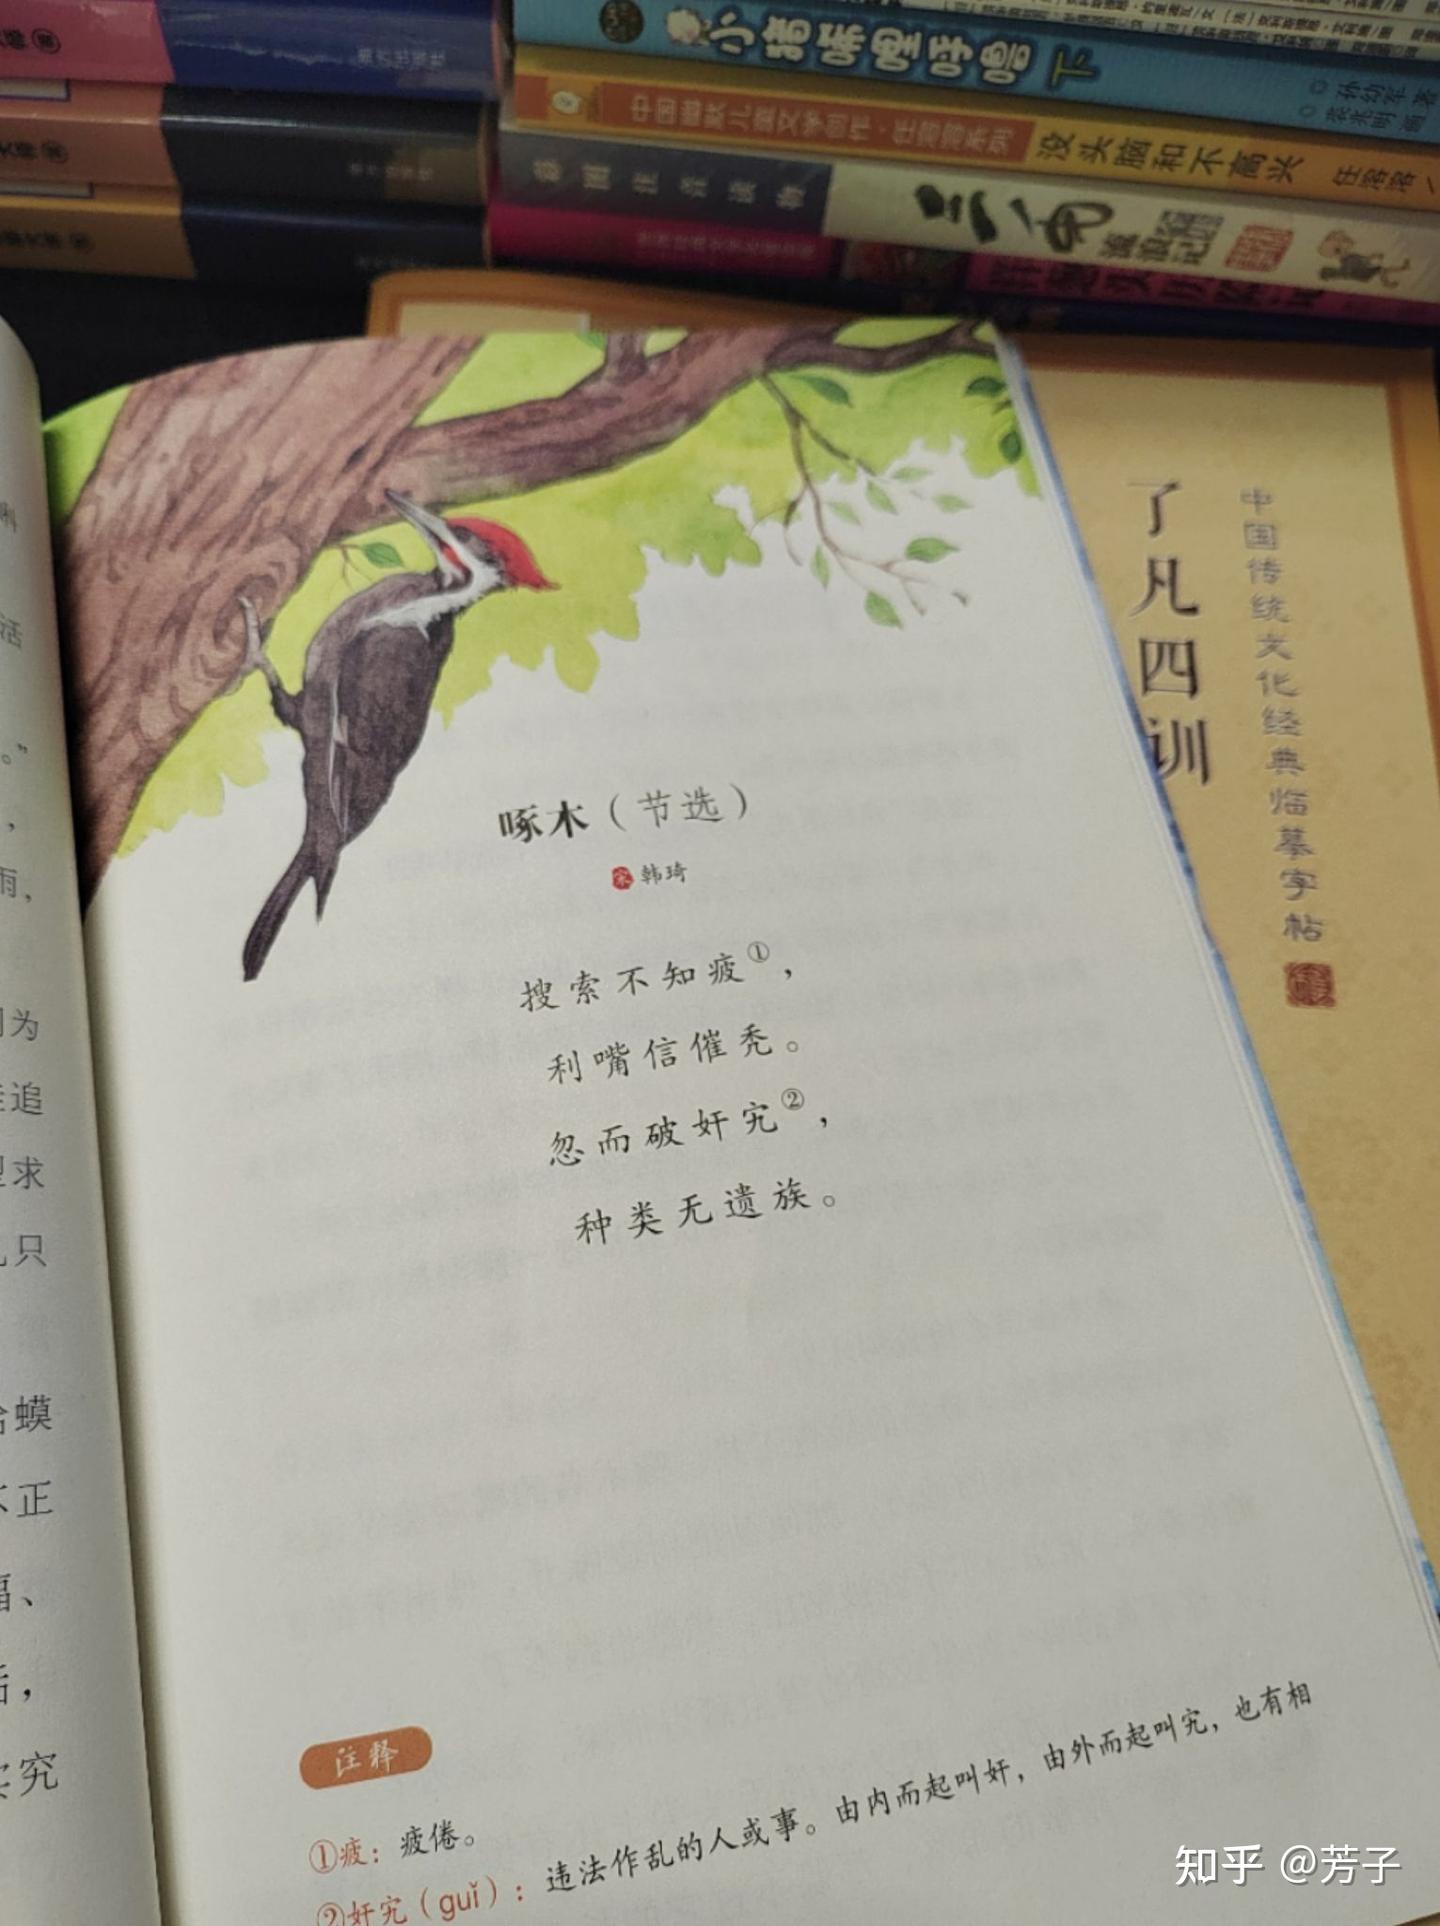 小猪唏哩呼噜 下
◎ 孙幼军 著
◎ 裴兆明 画
中国幽默儿童文学创作·任溶溶系列
没头脑和不高兴
任溶溶
三毛
流浪记
了凡四训
中国传统文化经典临摹字帖
活
。”
雨，
为
追
求
只
蟆
正
、
，
究
啄木（节选）
宋 韩琦
搜索不知疲①，
利嘴信催秃。
忽而破奸宄②，
种类无遗族。
注释
①疲：疲倦。
②奸宄（guǐ）：违法作乱的人或事。由内而起叫奸，由外而起叫宄，也有相
知乎 @芳子